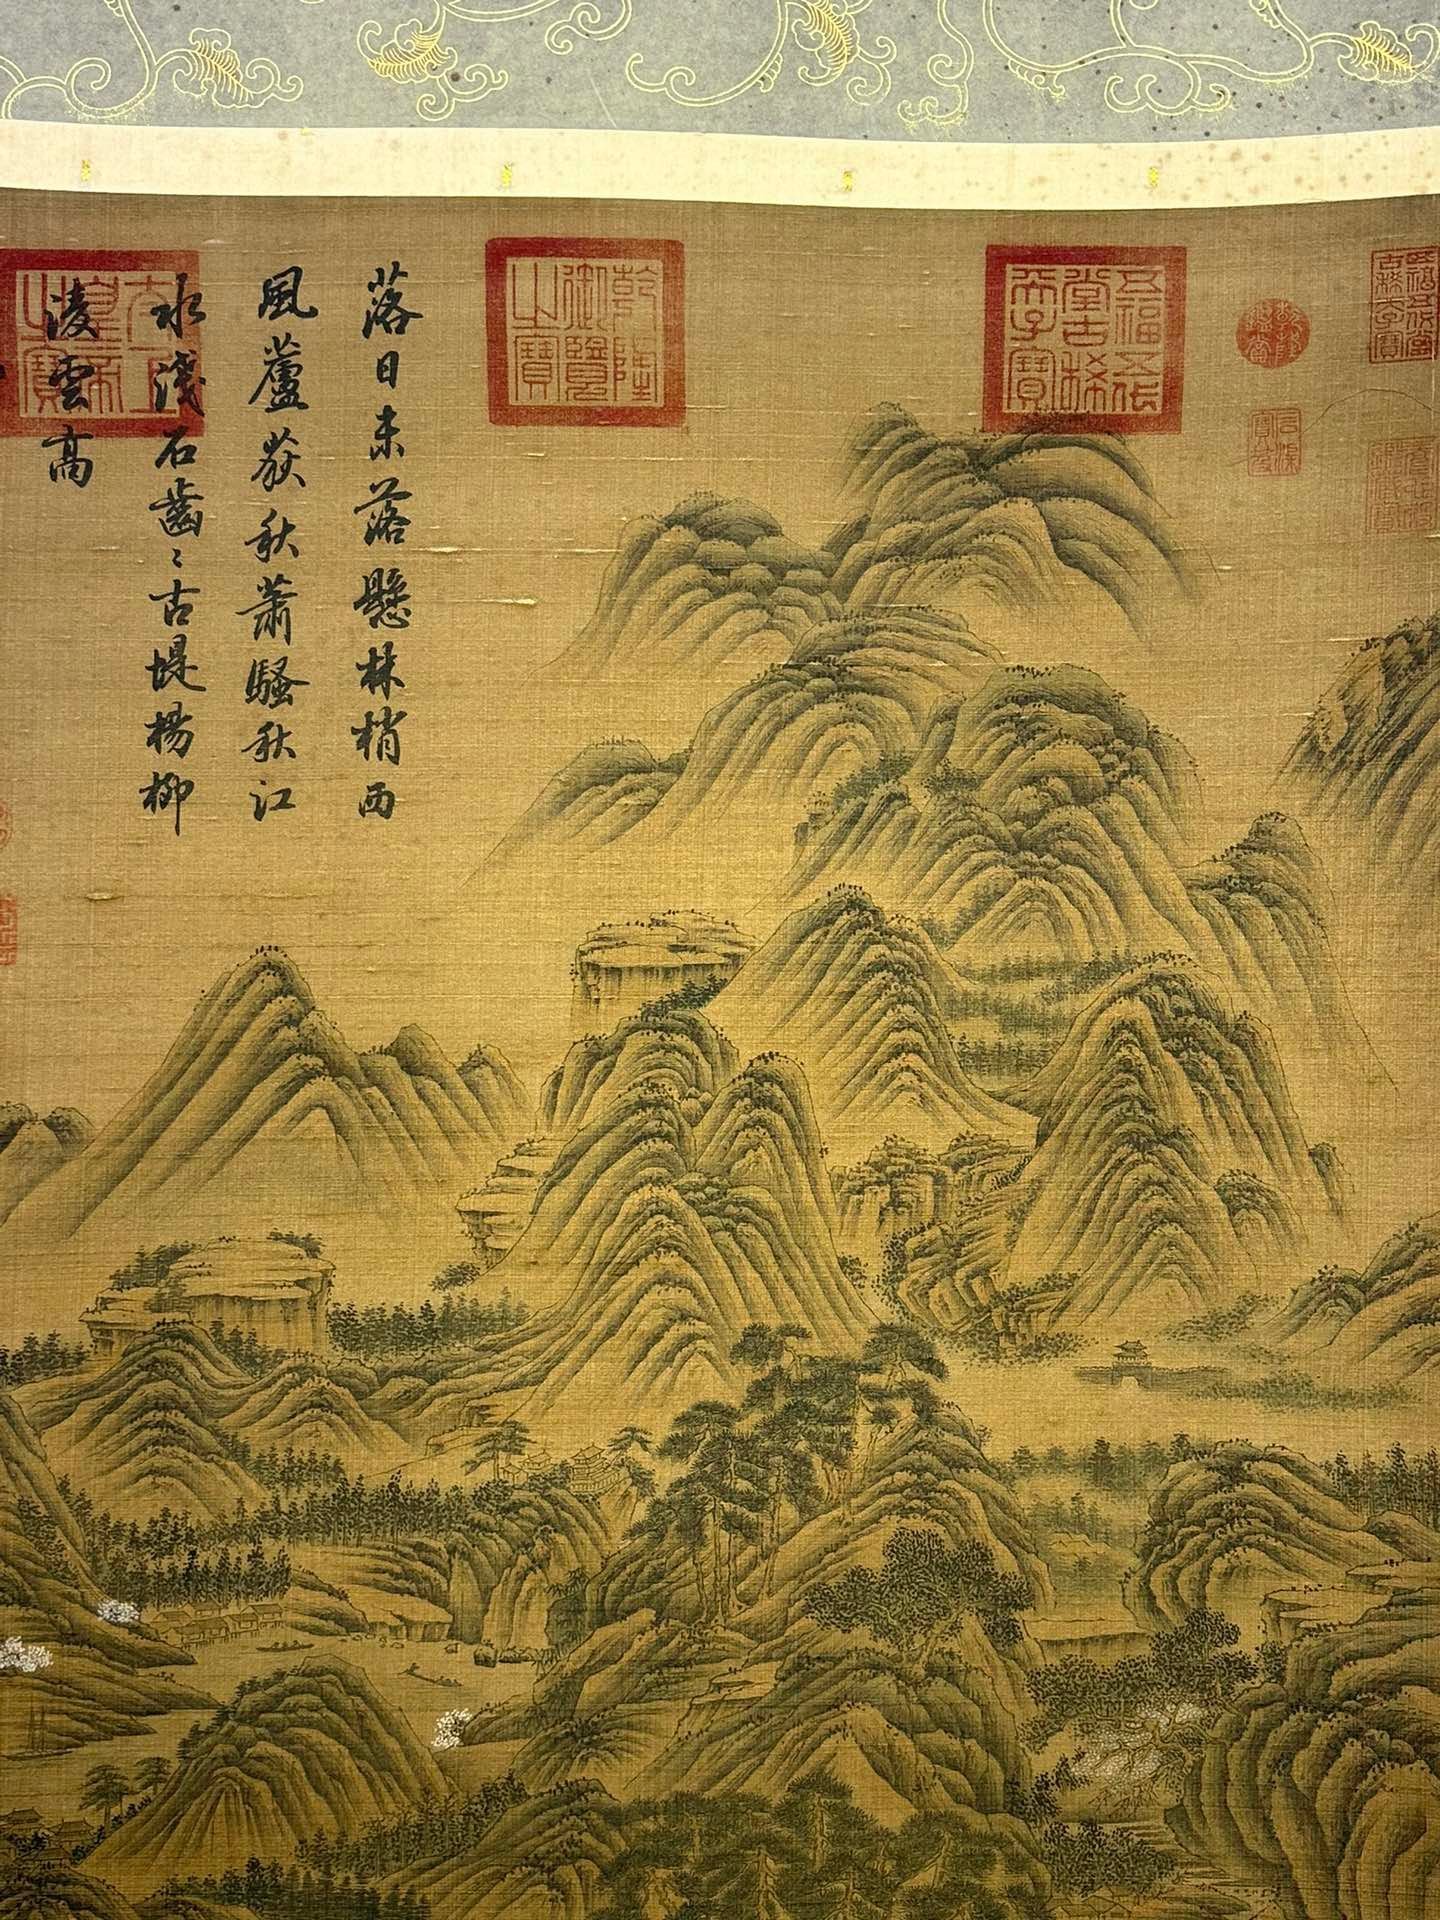 落日未落懸林梢西
風蘆荻秋蕭騷秋江
水淺石齒〻古堤楊柳
淩雲高
五福五代
堂古稀
天子寶
乾隆
御覽
之寶
太上
皇帝
之寶
五福五代堂
古稀天子寶